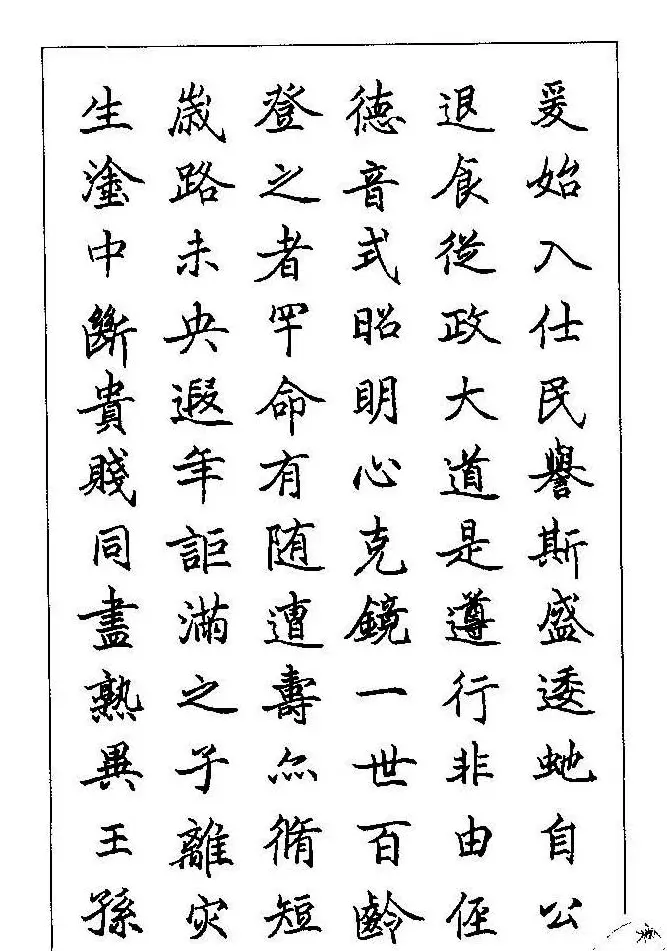 爰始入仕民譽斯盛逶虵自公
退食從政大道是遵行非由侄
德音式昭明心克鏡一世百齡
登之者罕命有随遭壽無脩短
歲路未央遐年詎滿之子離灾
生塗中斷貴賤同盡熟異王孫